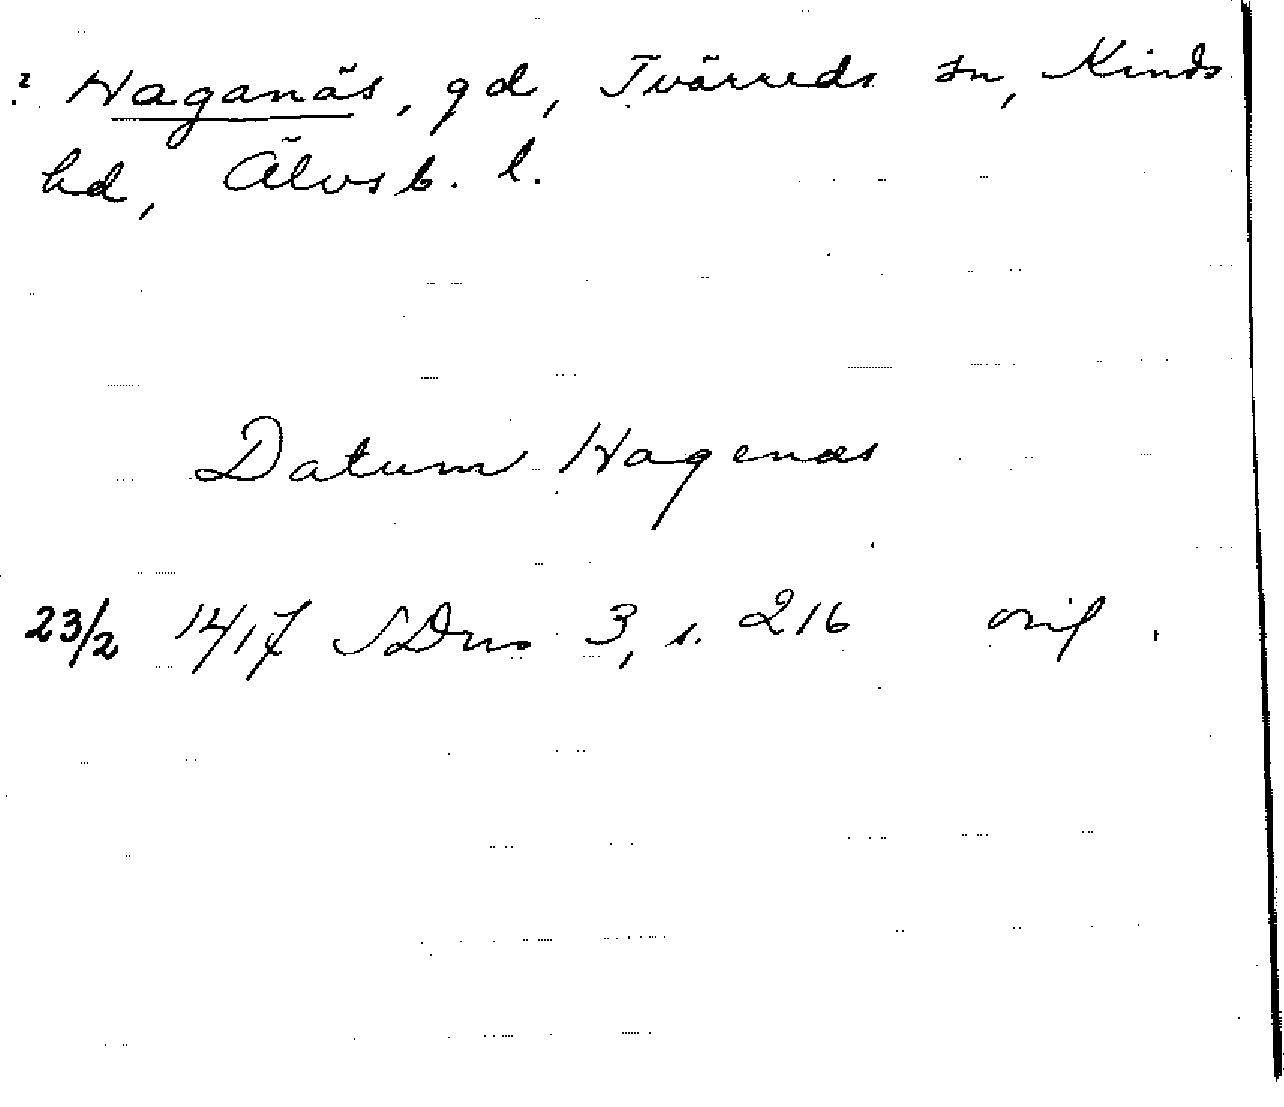 ? Haganäs, gd, Tvärreds sn, Kinds
hd, Älvsb. l.
Datum Hagenæs
23/2 1417 SDns 3, s. 216 orig.